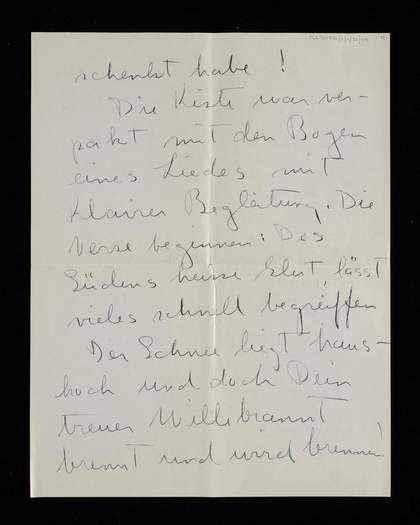 schenkt habe !
Die Kiste war ver-
pakt mit den Bogen
eines Liedes mit
Klavier Begleitung. Die
Verse beginnen: Des
Südens heisse Glut lässt
vieles schnell begreiffen
Der Schnee liegt haus-
hoch und doch Dein
treuer Willebrannt
brennt und wird brennen!